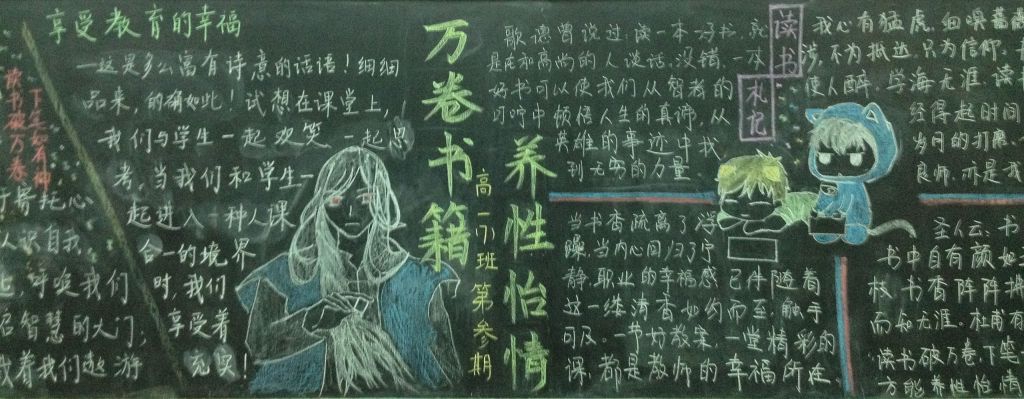 享受教育的幸福
一这是多么富有诗意的话语！细细
品来，的确如此！试想在课堂上，
我们与学生一起欢笑，一起思
考，当我们和学生一
起进入一种人课
合一的境界
时，我们
享受着
充实！
读书破万卷
下笔如有神
寄托心
认识自我
呼唤我们
智慧的大门，
着我们越游
万卷书籍
养性怡情
高一(7)班 第参期
歌德曾说过：读一本好书，就
是在和高尚的人谈话。没错，一本
好书可以使我们从智者的
叮咛中领悟人生的真谛，从
英雄的事迹中找
到无穷的力量。
当书香疏离了浮
躁，当内心回归了宁
静，职业的幸福感已伴随着
这一缕清香如约而至，触手
可及。一节好教案，一堂精彩的
课，都是教师的幸福所在。
读书
札记
我心有猛虎，细嗅蔷薇
涉，不为抵达，只为信仰。
使人醉，学海无涯，读
经得起时间
岁月的打磨。
良师，亦是我
圣人云，书
书中自有颜如
枝，书香阵阵
而知无涯。杜甫有
读书破万卷，下笔
方能养性怡情